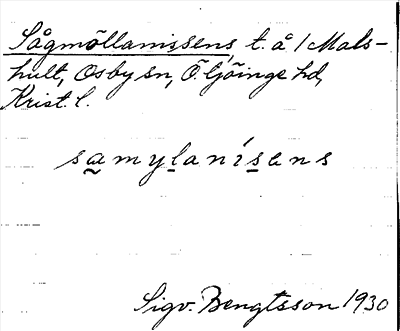 Sågmöllanissens t. å i Mals-
hult, Osby sn, Ö. Göinge hd,
Krist. l.
samylanisens
Sigv. Bengtsson 1930